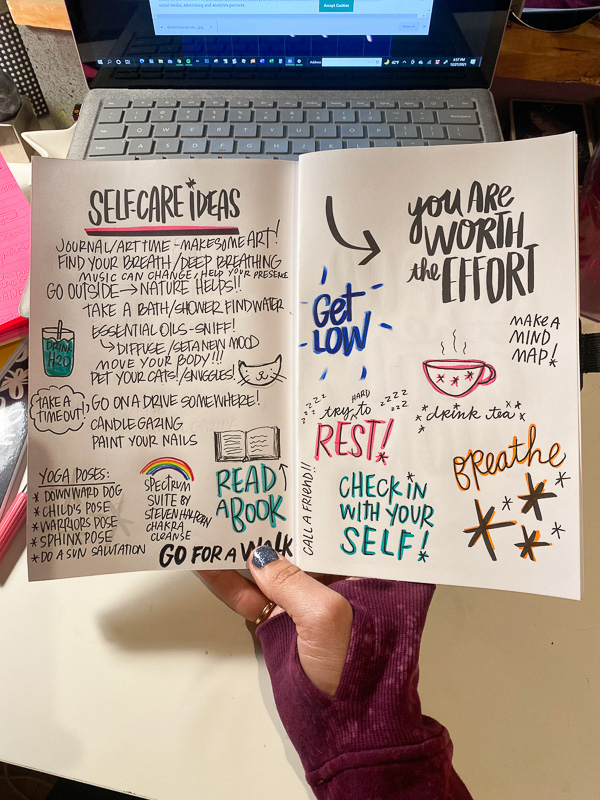 Accept Cookies
Address
4:57 PM
12/27/2021
SELFCARE IDEAS
JOURNAL/ART TIME - MAKE SOME ART!
FIND YOUR BREATH/DEEP BREATHING
MUSIC CAN CHANGE/HELP YOUR PRESENCE
GO OUTSIDE → NATURE HELPS!!
TAKE A BATH/SHOWER FIND WATER
ESSENTIAL OILS - SNIFF!
↳ DIFFUSE/SET A NEW MOOD
MOVE YOUR BODY!!!
PET YOUR CATS!/SNUGGLES!
DRINK
H2O
TAKE A
TIMEOUT!
GO ON A DRIVE SOMEWHERE!
CANDLE GAZING
PAINT YOUR NAILS
YOGA POSES:
* DOWNWARD DOG
* CHILD'S POSE
* WARRIORS POSE
* SPHINX POSE
* DO A SUN SALUTATION
SPECTRUM
SUITE BY
STEVEN HALPERN
CHAKRA
CLEANSE
READ
A BOOK
GO FOR A WALK
you ARE
WORTH
the EFFORT
Get
LOW
MAKE A
MIND
MAP!
zzzz try HARD to zzzz
REST!
drink tea
Breathe
CALL A FRIEND!!
CHECK IN
WITH YOUR
SELF!